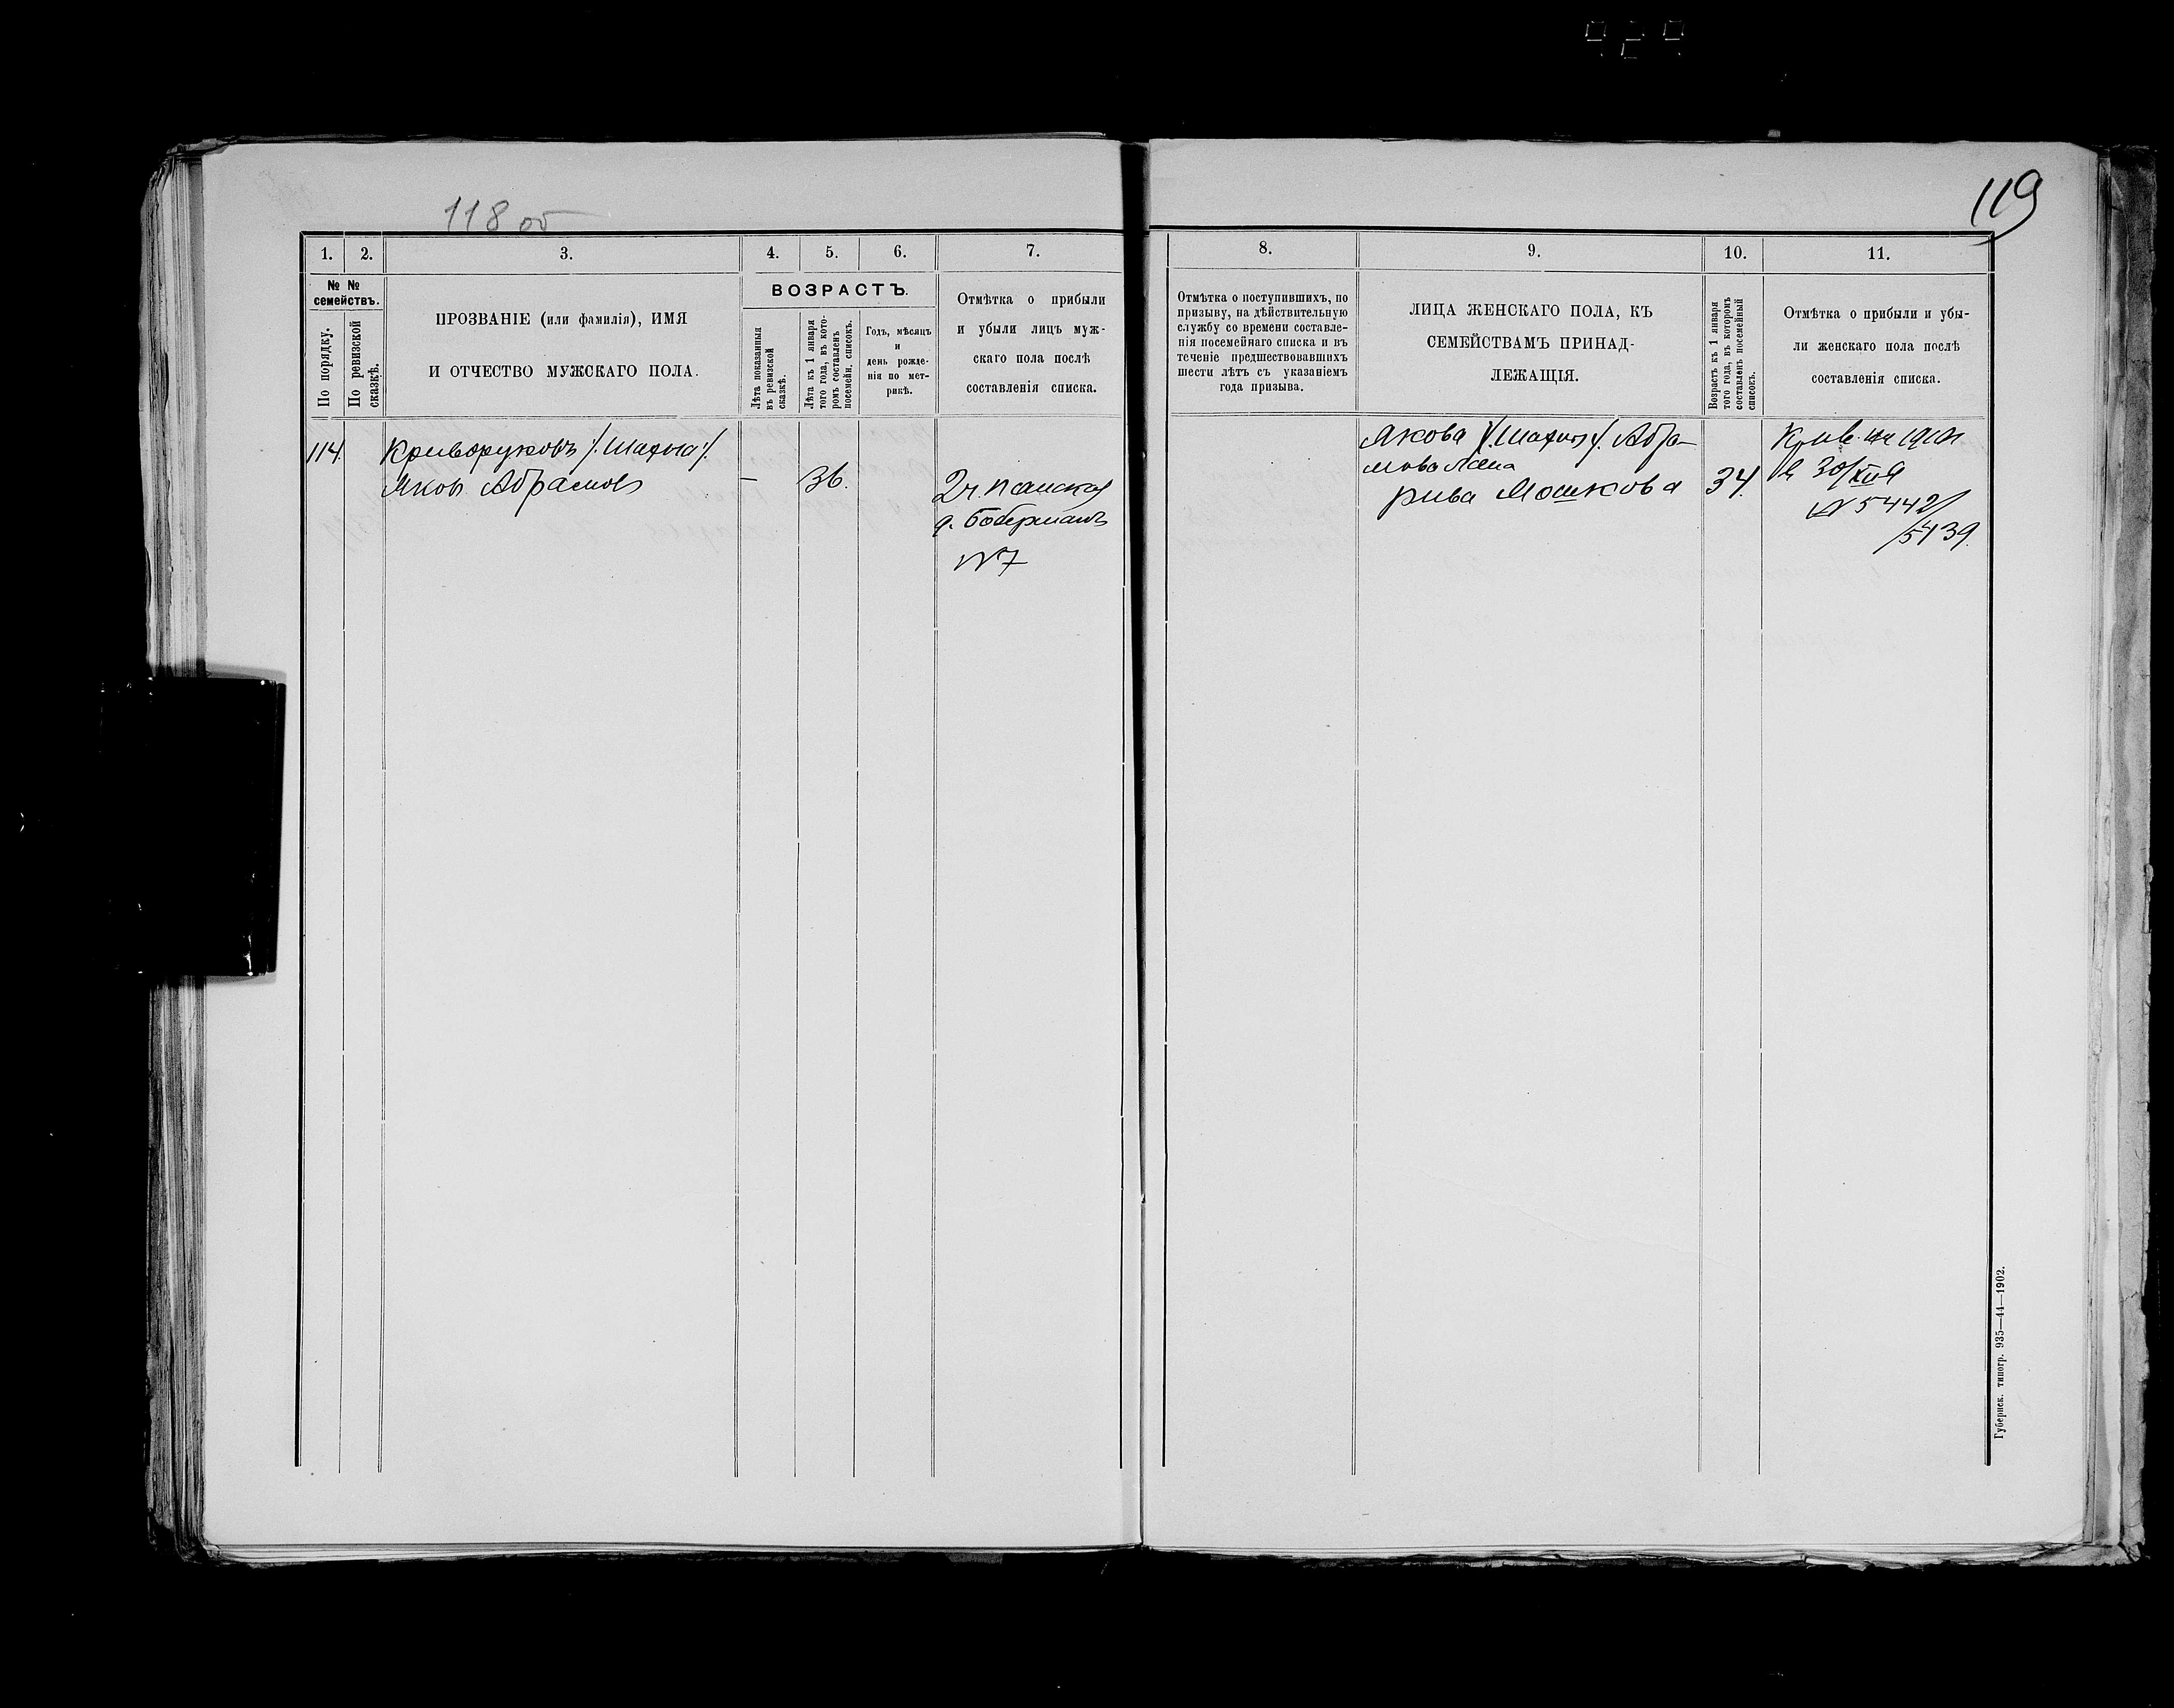 118 об
119
1. 2. 3. 4. 5. 6. 7.
№ №
семействъ.
По порядку.
По ревизской
сказкѣ.
ПРОЗВАНІЕ (или фамилія), ИМЯ
И ОТЧЕСТВО МУЖСКАГО ПОЛА.
ВОЗРАСТЪ.
Лѣта показанныя
въ ревизской
сказкѣ.
Лѣта къ 1 января
того года, въ кото-
ромъ составленъ
посемейн. список.
Годъ, мѣсяцъ
и
день рожде-
нія по мет-
рикѣ.
Отмѣтка о прибыли
и убыли лицъ муж-
скаго пола послѣ
составленія списка.
114.
Криворуковъ /. Шафна ./
Яковъ Абрамовъ
—
36.
2 ч. Панская
д. Боберманъ
№ 7
8. 9. 10. 11.
Отмѣтка о поступившихъ, по
призыву, на дѣйствительную
службу со времени составле-
нія посемейнаго списка и въ
теченіе предшествовавшихъ
шести лѣтъ съ указаніемъ
года призыва.
ЛИЦА ЖЕНСКАГО ПОЛА, КЪ
СЕМЕЙСТВАМЪ ПРИНАД-
ЛЕЖАЩІЯ.
Возрастъ къ 1 января
того года, въ которомъ
составленъ посемейный
списокъ.
Отмѣтка о прибыли и убы-
ли женскаго пола послѣ
составленія списка.
Якова /. Шафны ./ Абра-
мова жена
Рива Мошкова
34.
№ 5442/
5439.
Губернск. типогр. 935—44—1902.